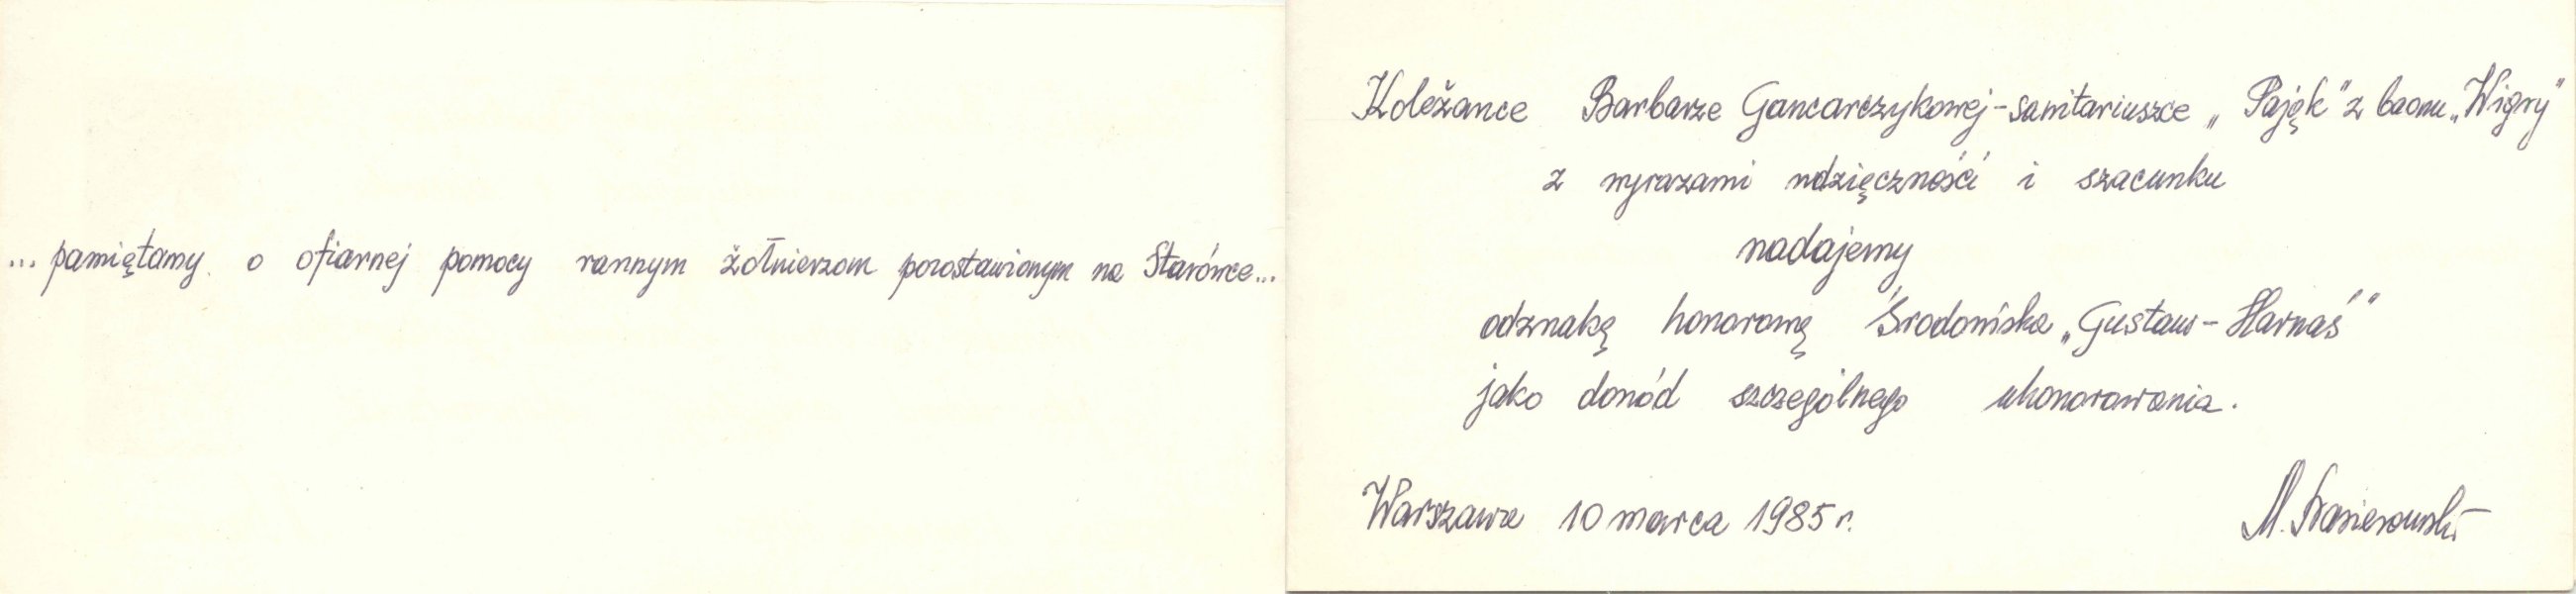 ... pamiętamy o ofiarnej pomocy rannym żołnierzom pozostawionym na Starówce...
Koleżance Barbarze Gancarczykowej - sanitariuszce „Pająk" z baonu „Wigry"
z wyrazami wdzięczności i szacunku
nadajemy
odznakę honorową Środowiska „Gustaw - Harnaś"
jako dowód szczególnego uhonorowania.
Warszawa 10 marca 1985 r.
M.